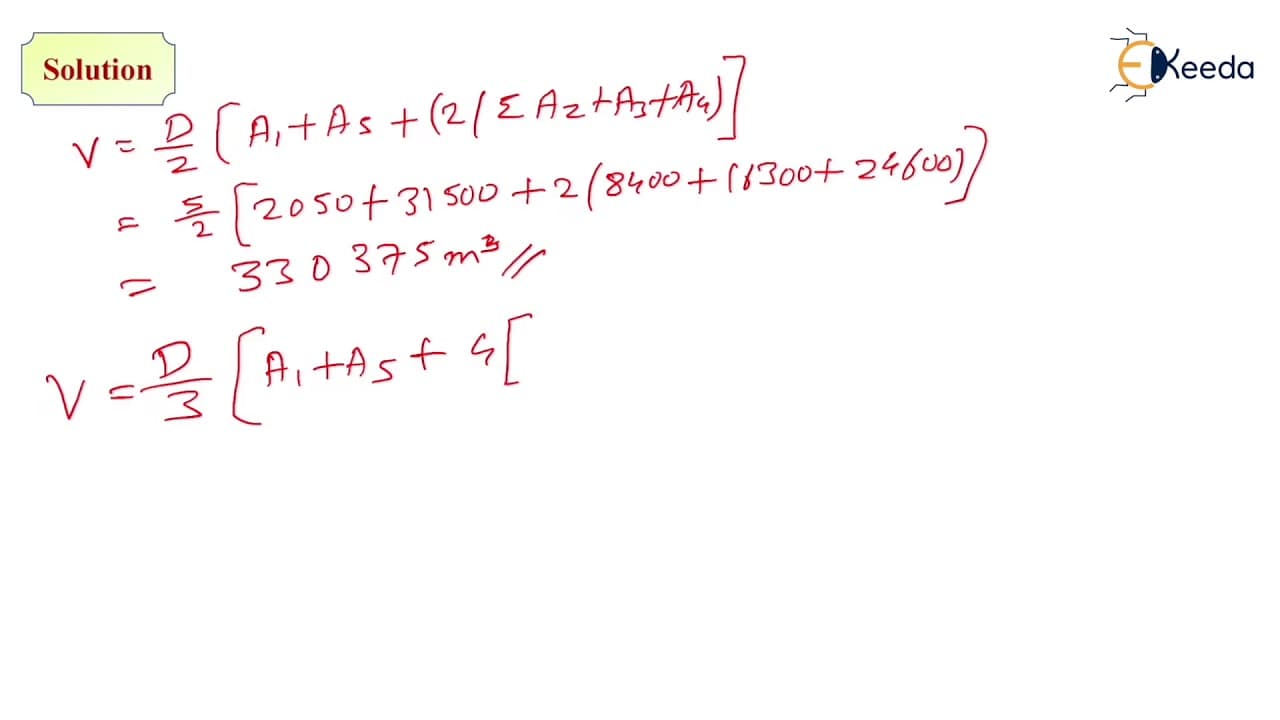 Solution
EKeeda
V = D/2 [A₁ + A₅ + (2(Σ A₂ + A₃ + A₄)]
= 5/2 [2050 + 31500 + 2(8400 + 16300 + 24600)]
= 330 375 m³ //
V = D/3 [A₁ + A₅ + 4[